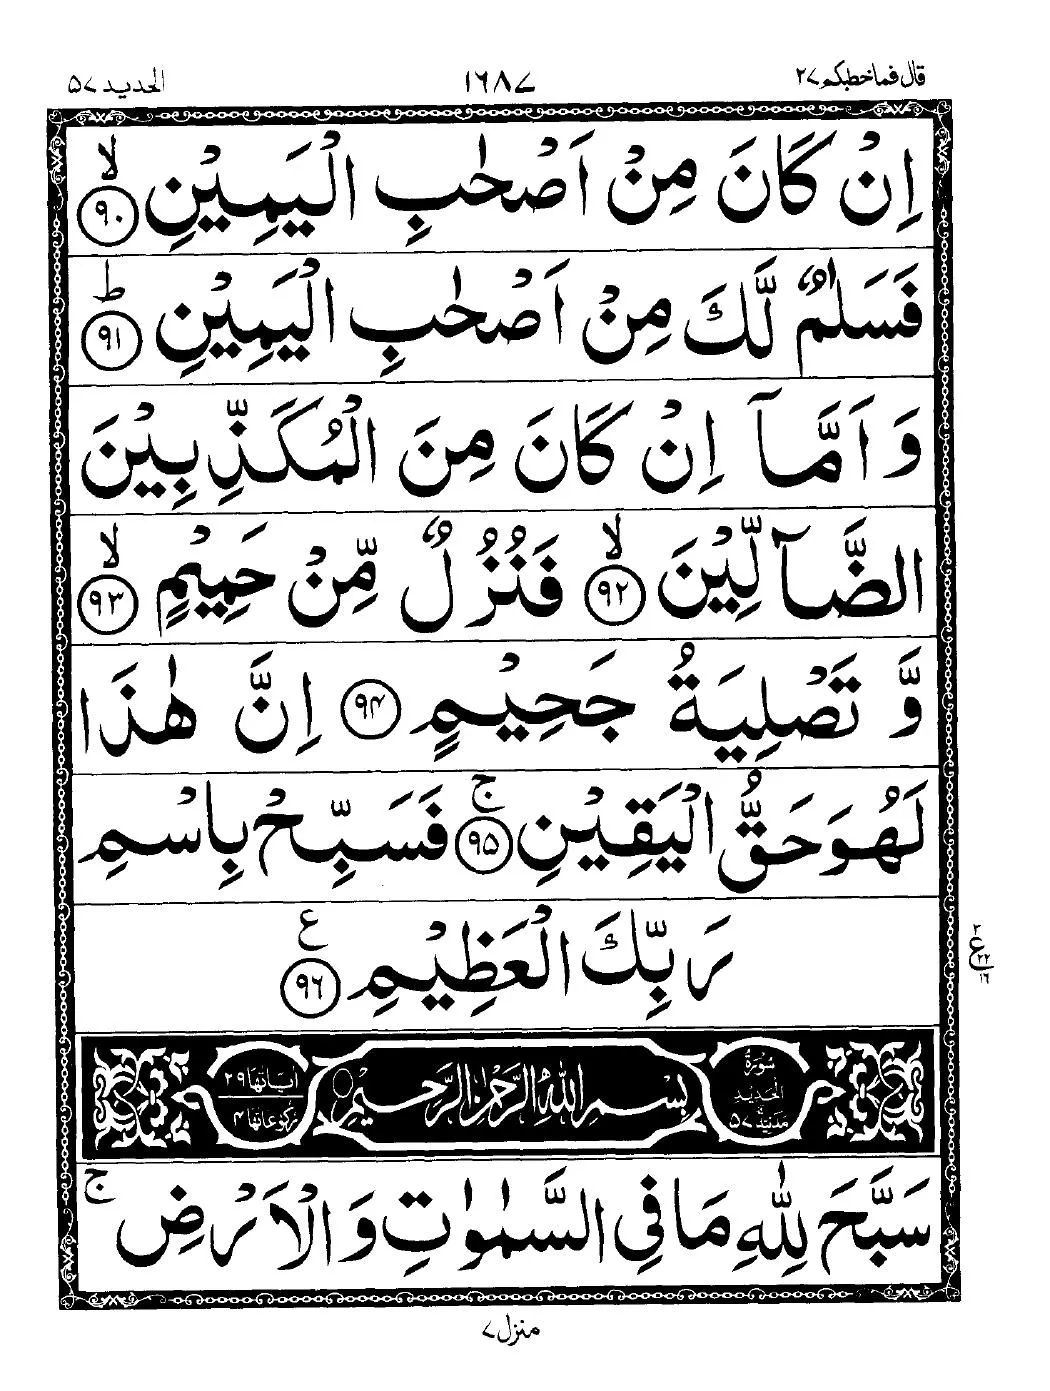 قال فما خطبكم ٢٧ ١٦٨٧ الحديد ٥٧
اِنْ كَانَ مِنْ اَصْحٰبِ الْيَمِيْنِ ۙ‏﴿۹۰﴾
فَسَلٰمٌ لَّكَ مِنْ اَصْحٰبِ الْيَمِيْنِ ؕ‏﴿۹۱﴾
وَ اَمَّاۤ اِنْ كَانَ مِنَ الْمُكَذِّبِيْنَ
الضَّآلِّيْنَ ۙ‏﴿۹۲﴾ فَنُزُلٌ مِّنْ حَمِيْمٍ ۙ‏﴿۹۳﴾
وَّ تَصْلِيَةُ جَحِيْمٍ ﴿۹۴﴾ اِنَّ هٰذَا
لَهُوَ حَقُّ الْيَقِيْنِ ۚ‏﴿۹۵﴾ فَسَبِّحْ بِاسْمِ
رَبِّكَ الْعَظِيْمِ ﴿۹۶﴾ ع
٣ ع ٢٢ ١٦
سُوْرَةُ الحديد مدنية ٥٧ بِسْمِ اللّٰهِ الرَّحْمٰنِ الرَّحِيْمِ اٰياتها ٢٩ ركوعاتها ۴
سَبَّحَ لِلّٰهِ مَا فِي السَّمٰوٰتِ وَ الْاَرْضِ ۚ
منزل ٧